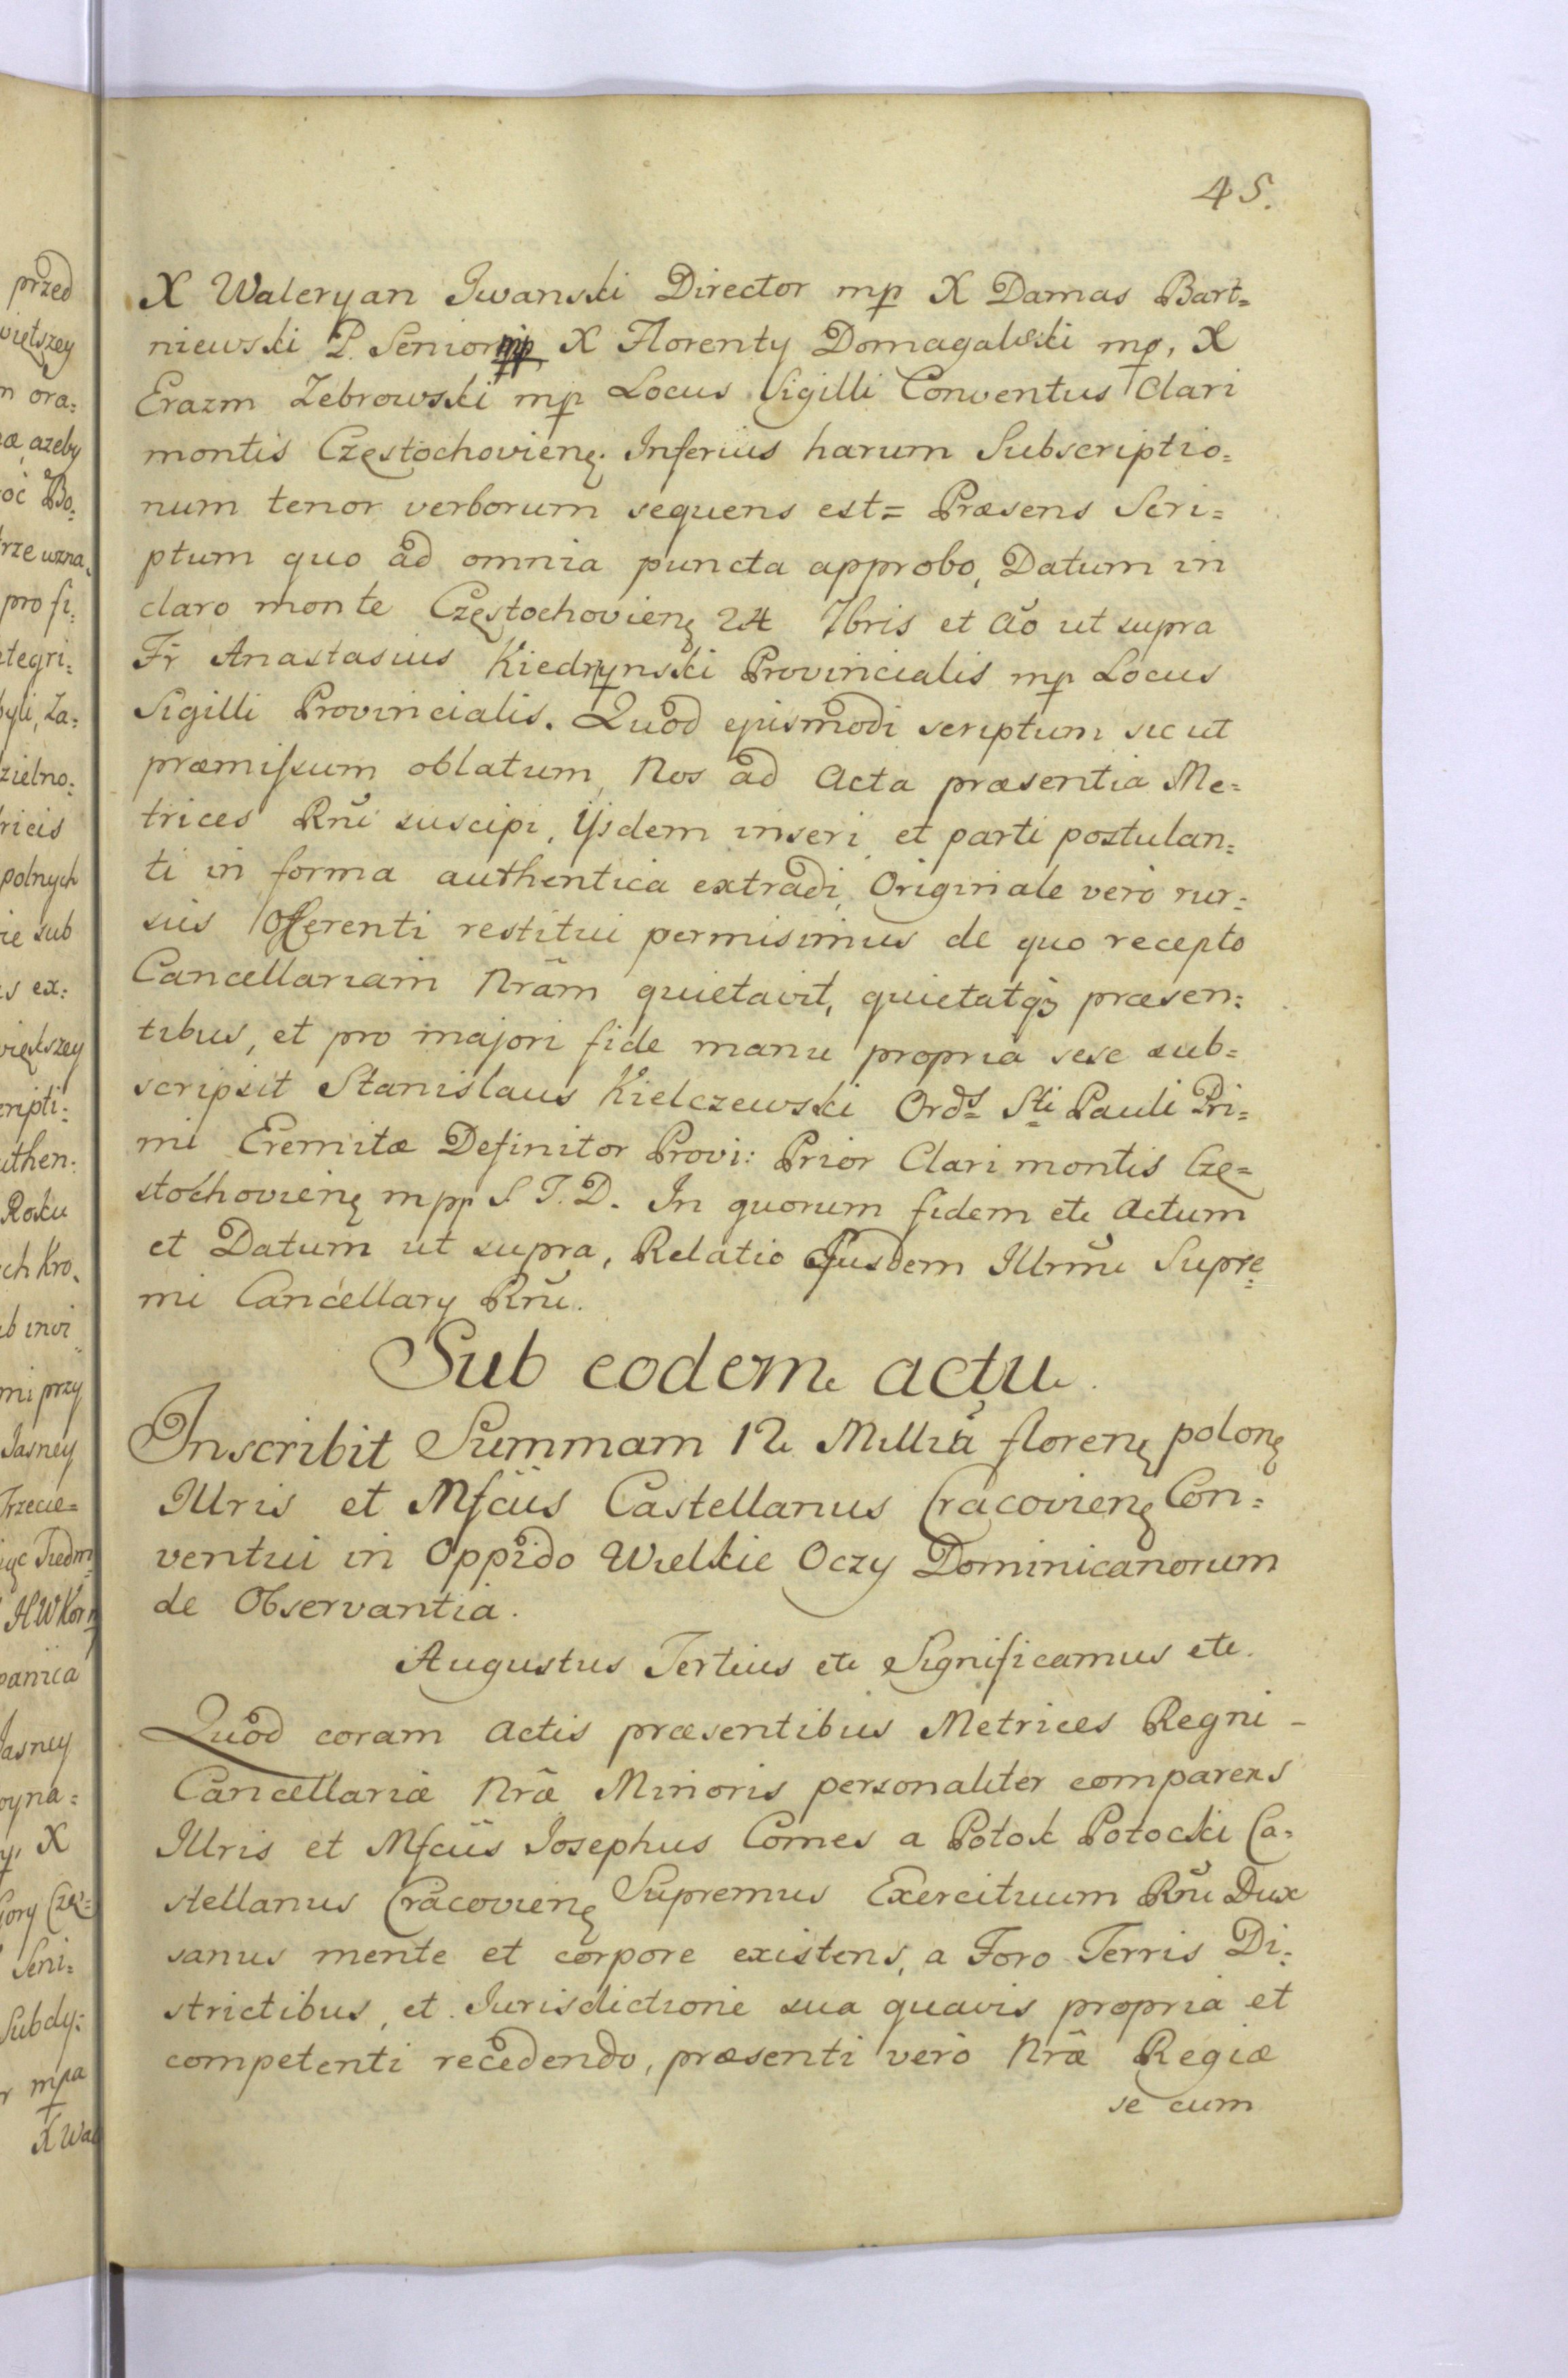 45.
X Waleryan Iwanski Director mp X Damas Bart=
niewski P. Senior mp X Florenty Domagalski mp, X
Erazm Zebrowski mp Locus Sigilli Conventus Clari
montis Częstochovienę. Inferius harum Subscriptio=
num tenor verborum sequens est= Præsens Scri=
ptum quo ad omnia puncta approbo, Datum in
claro monte Częstochovienę 24 7bris et Aõ ut supra
Fr̃ Anastasius Kiedrzynski Provincialis mp Locus
Sigilli Provincialis. Quod ejusmodi scriptum sic ut
præmissum oblatum, Nos ad Acta præsentia Me=
trices Rñi suscipi, ijsdem inseri et parti postulan=
ti in forma authentica extradi, Originale vero rur=
sus Offerenti restitui permisimus de quo recepto
Cancellariam Nrãm quietavit, quietatqȝ præsen=
tibus, et pro majori fide manu propria sese sub=
scripsit Stanislaus Kielczewski Ords Sti Pauli Pri=
mi Eremitæ Definitor Provi: Prior Clari montis Czę=
stochovienę mpp S. T. D. In quorum fidem etc Actum
et Datum ut supra, Relatio Ejusdem Illrmi Supre=
mi Cancellary Rñi.
Sub eodem actu.
Inscribit Summam 12 Millia florenę polonę
Illris et Mfcus Castellanus Cracovienę Con=
ventui in Oppido Wielkie Oczy Dominicanorum
de Observantia.
Augustus Tertius etc Significamus etc.
Quod coram Actis præsentibus Metrices Regni -
Cancellariæ Nræ Minoris personaliter comparens
Illris et Mfcus Iosephus Comes a Potok Potocki Ca=
stellanus Cracovienę Supremus Exercituum Rñi Dux
sanus mente et corpore existens, a Foro Terris Di=
strictibus, et Iurisdictione sua quavis propria et
competenti recedendo, præsenti vero Nræ Regiæ
se cum